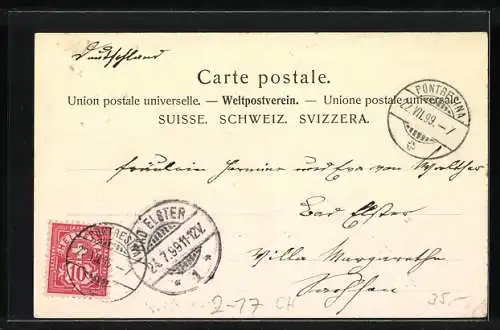 Deutschland
Carte postale.
Union postale universelle. — Weltpostverein. — Unione postale universale.
SUISSE. SCHWEIZ. SVIZZERA.
PONTRESINA
22.VII.99.-7
Fräulein Hermine und Eva von Walther
Bad Elster
Villa Margarethe
Sachsen
BAD ELSTER
24.7.99.11-12V.
* 1 *
PONTRESINA
10
2-17 CH
35.-